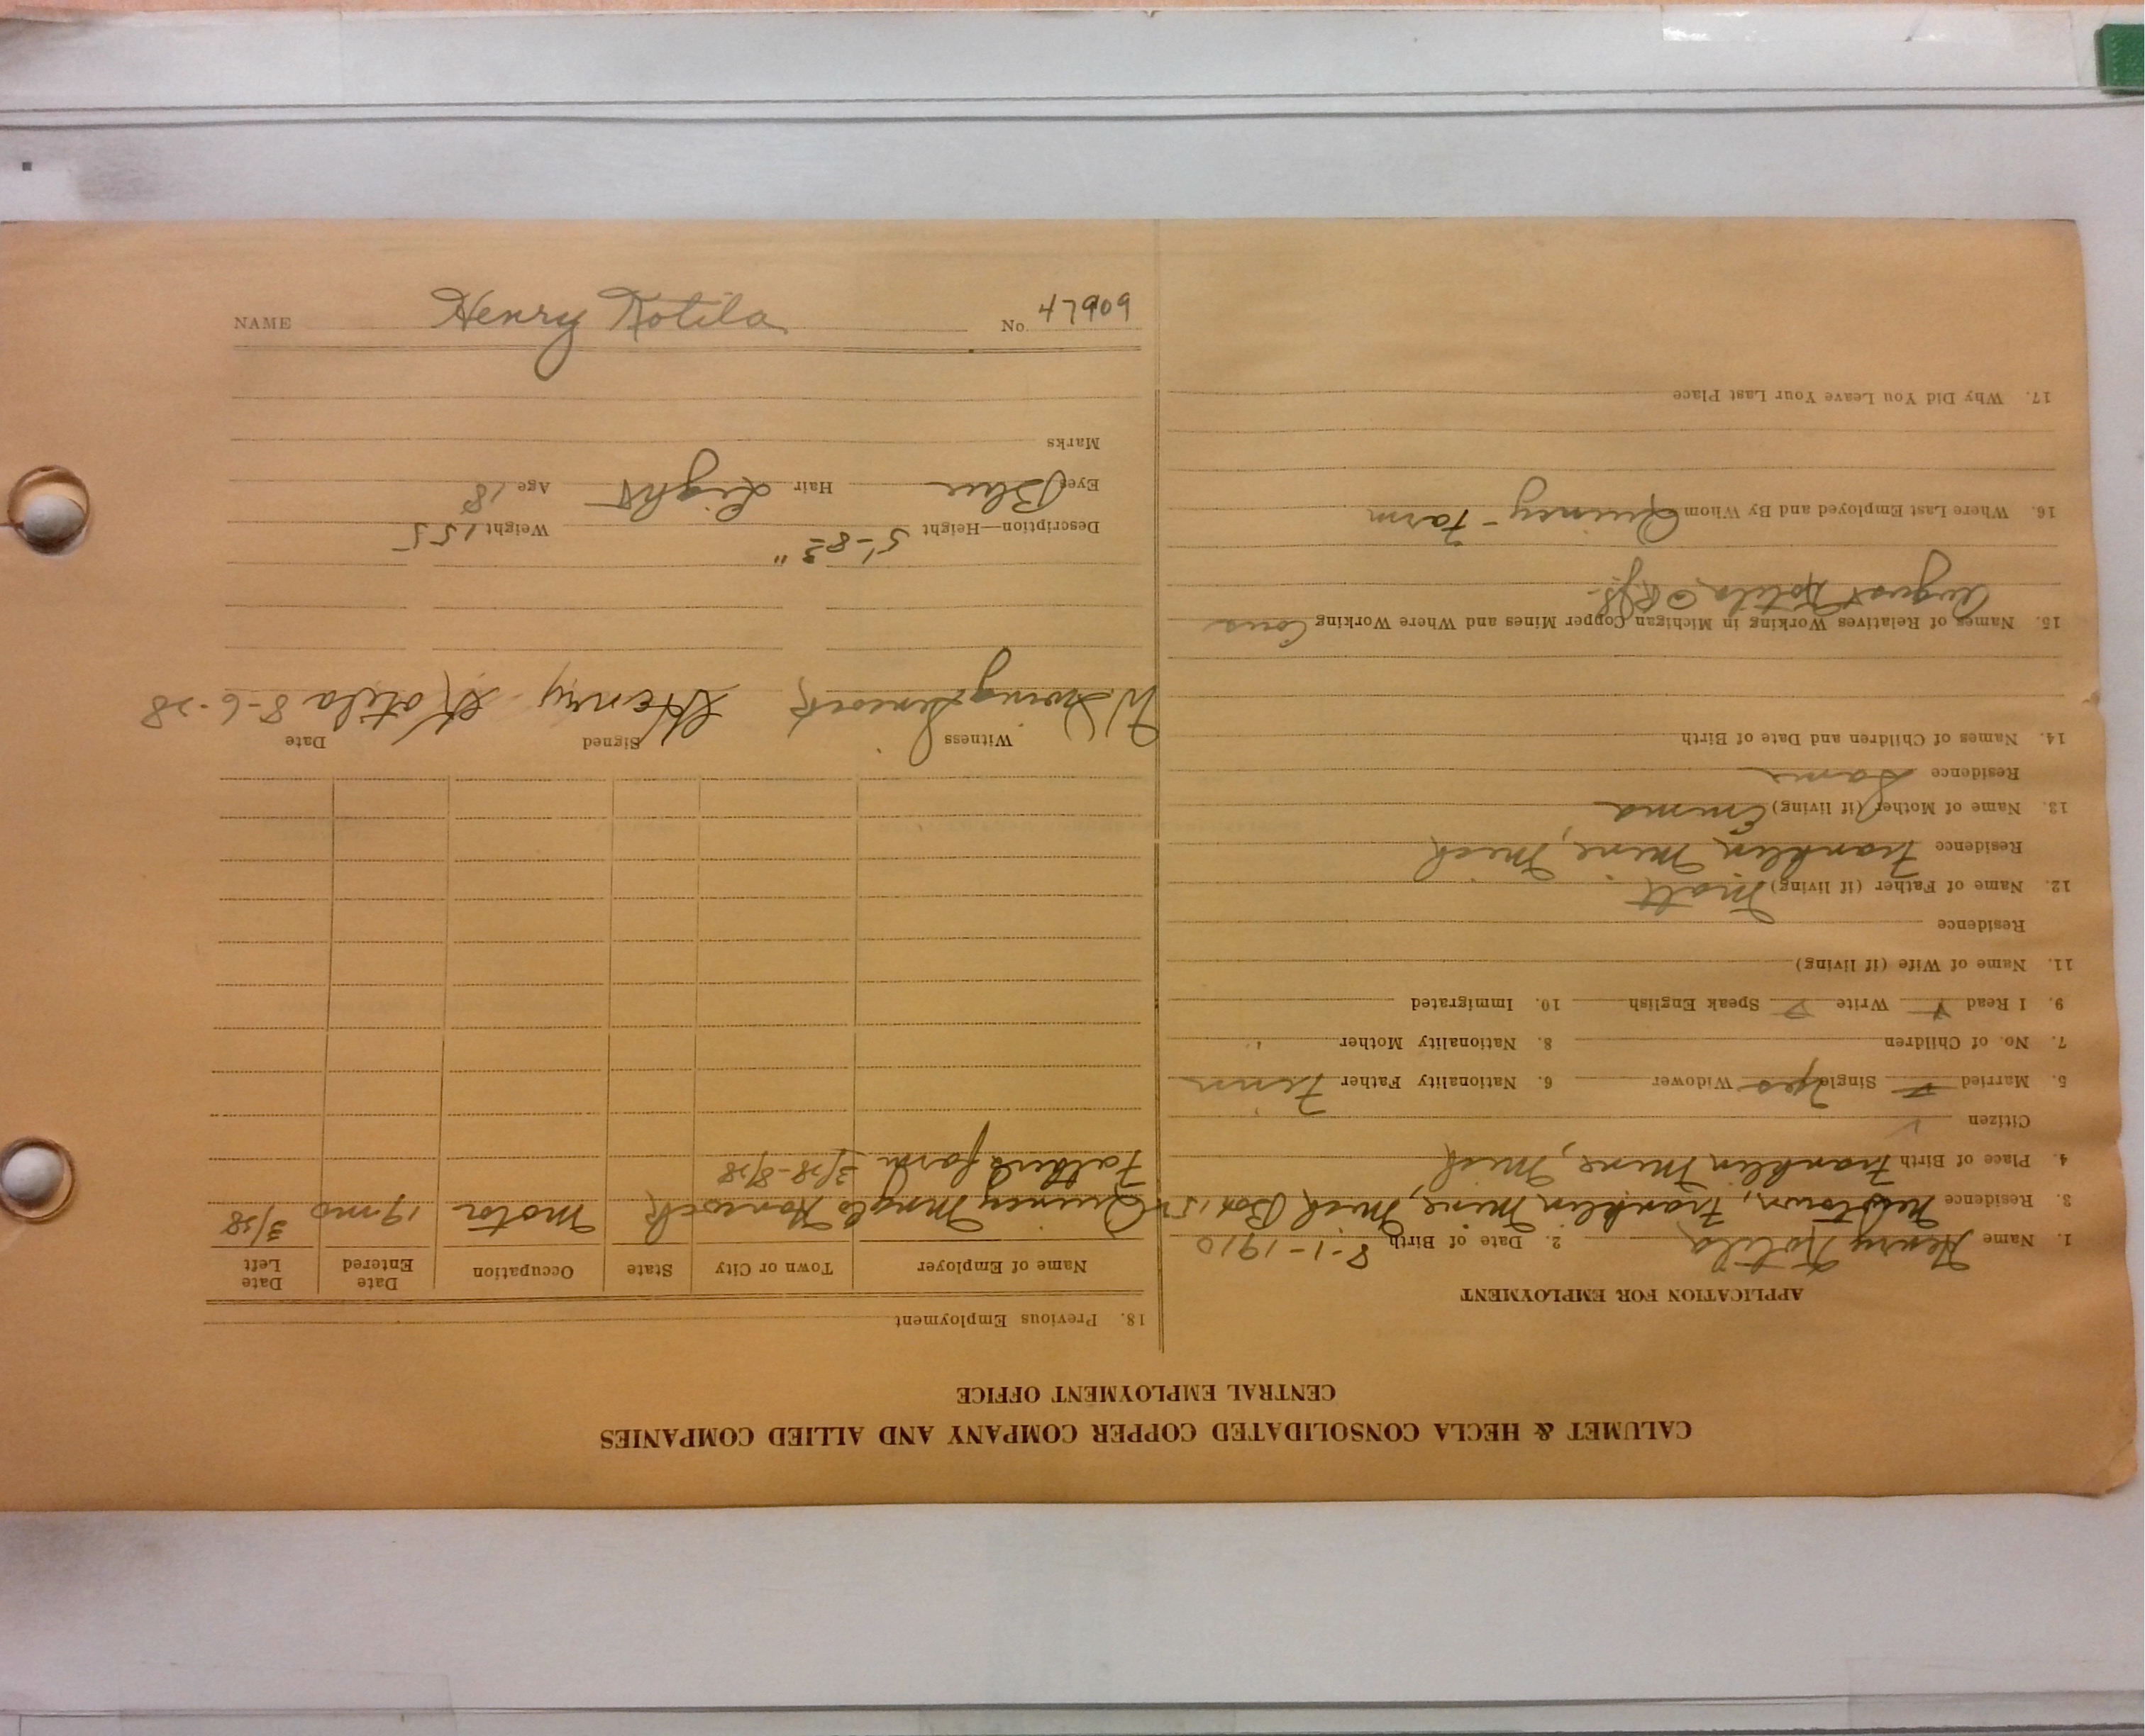 CALUMET & HECLA CONSOLIDATED COPPER COMPANY AND ALLIED COMPANIES
CENTRAL EMPLOYMENT OFFICE
APPLICATION FOR EMPLOYMENT
1. Name Henry Kotila 2. Date of Birth 8-1-1910
3. Residence Newtown, Franklin Mine, Mich Box 15
4. Place of Birth Franklin Mine, Mich
Citizen ✓
5. Married Single yes Widower 6. Nationality Father Finn
7. No. of Children 8. Nationality Mother "
9. I Read Write Speak English 10. Immigrated
11. Name of Wife (if living)
Residence
12. Name of Father (if living) Matt
Residence Franklin Mine, Mich
13. Name of Mother (if living) Emma
Residence Same
14. Names of Children and Date of Birth
15. Names of Relatives Working in Michigan Copper Mines and Where Working Cous
August Kotila
16. Where Last Employed and By Whom Quincy - Farm
17. Why Did You Leave Your Last Place
18. Previous Employment
Name of Employer Town or City State Occupation Date Entered Date Left
Quincy Mng Co Hancock Motor 19 mo 3/28
Fathers farm 3/28-8/28
Witness Signed Date
Henry Kotila 8-6-28
Description—Height 5'-8 Weight 155
Eyes Blue Hair Light Age 18
Marks
NAME Henry Kotila No. 47909